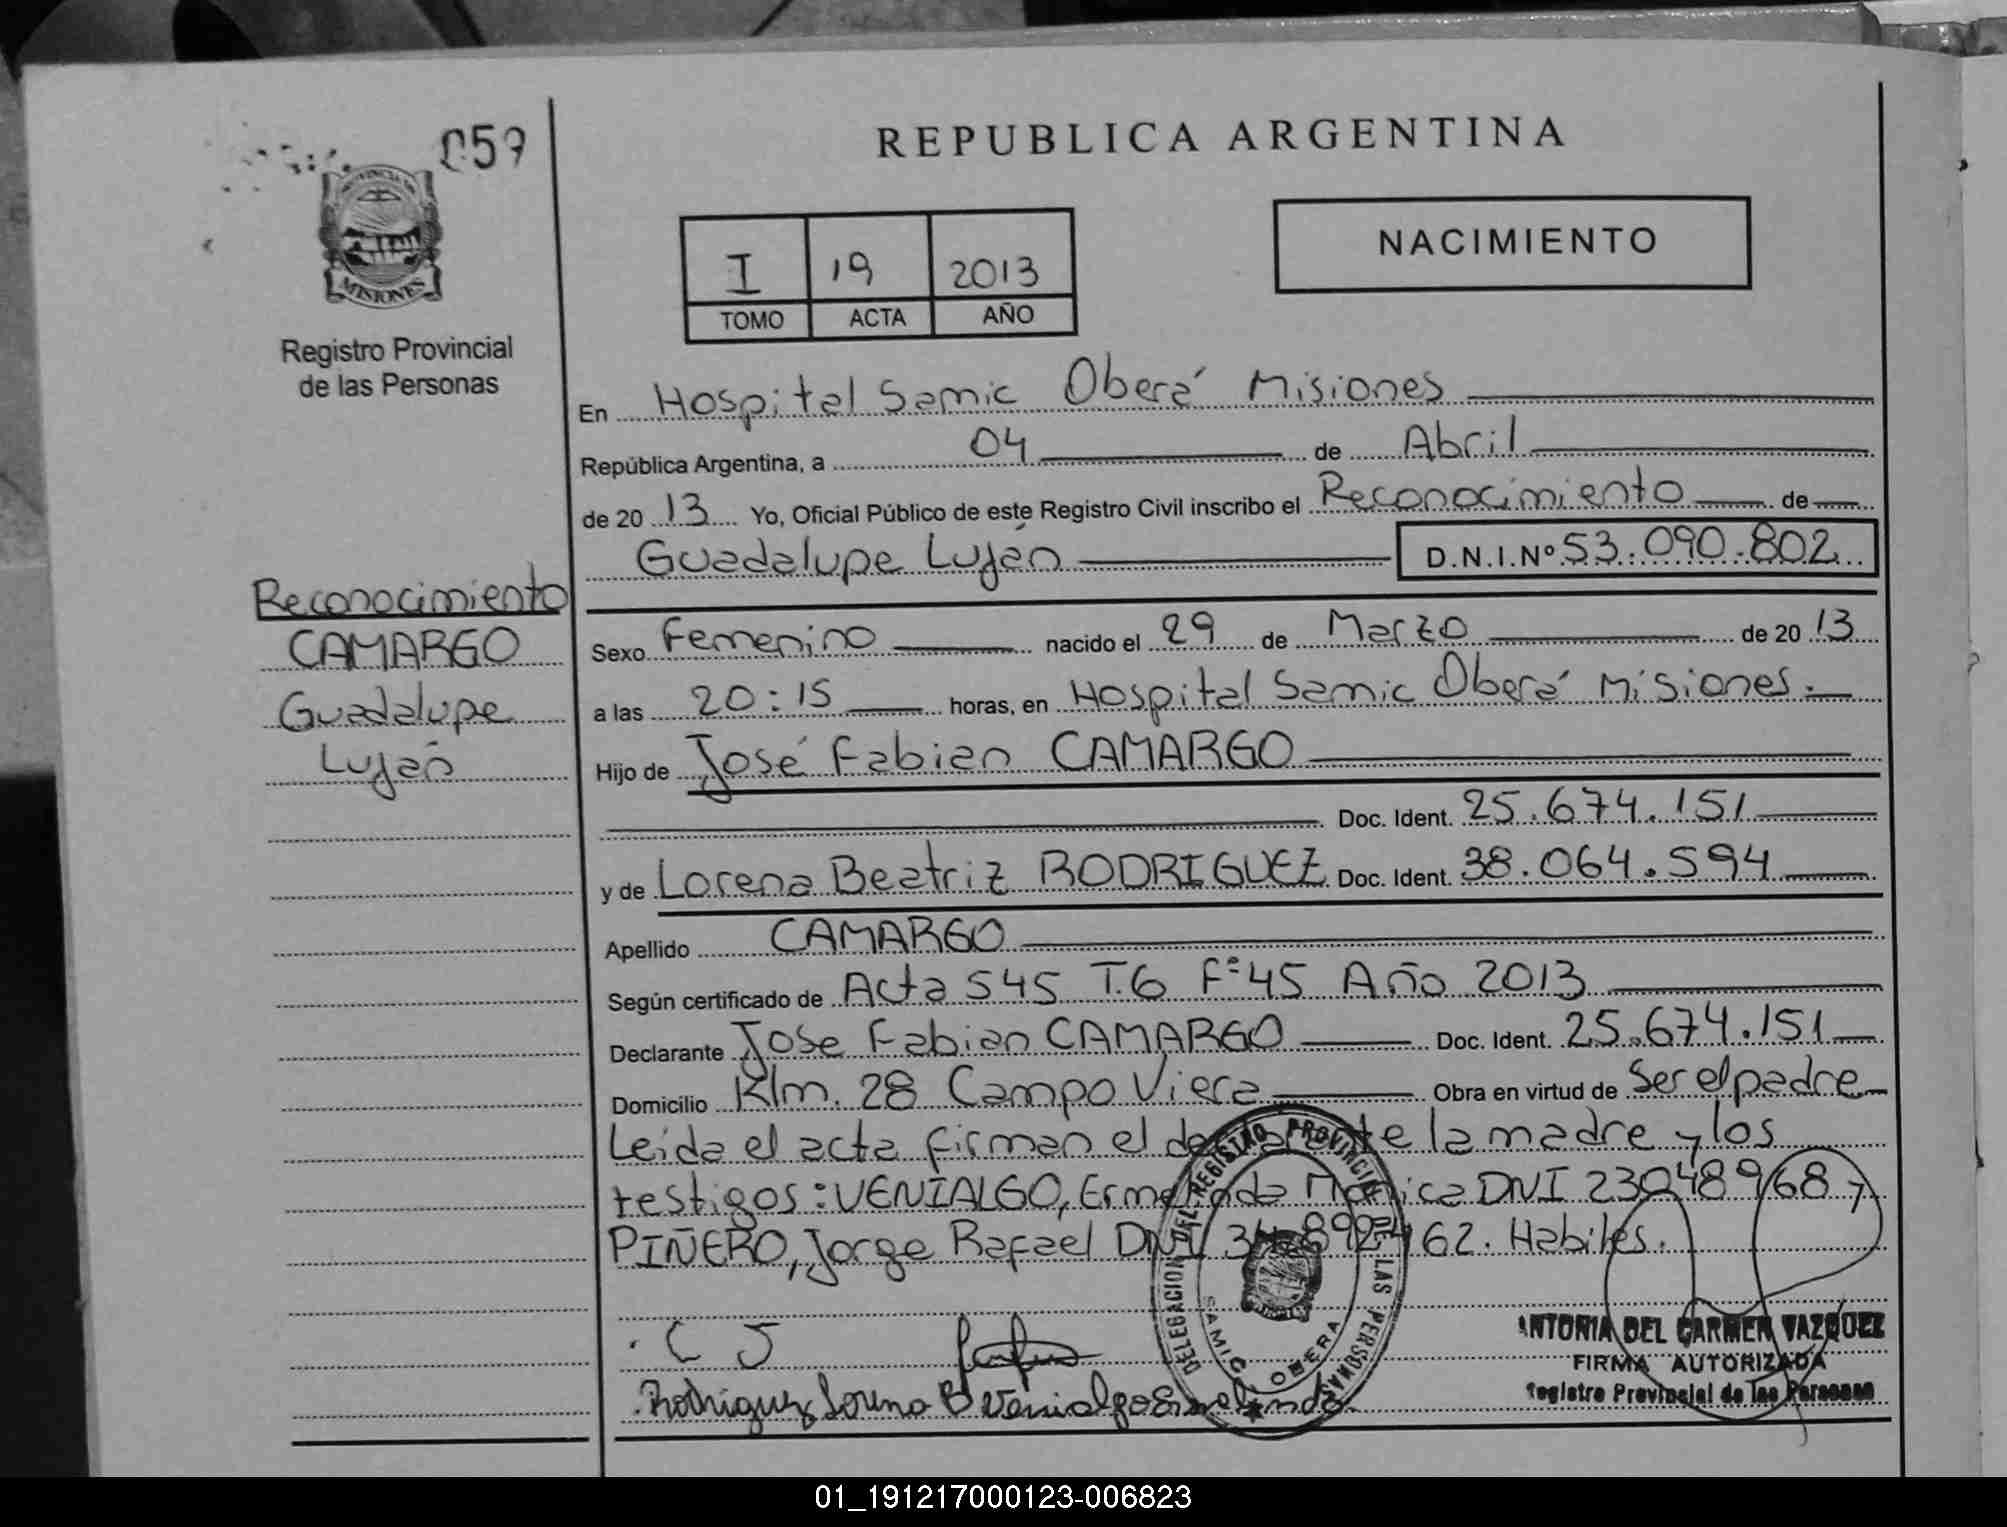 059
REPUBLICA ARGENTINA
PROVINCIA DE
MISIONES
Registro Provincial
de las Personas
I 19 2013
TOMO ACTA AÑO
NACIMIENTO
En Hospital Samic Oberá Misiones
República Argentina, a 04 de Abril
de 20 13 Yo, Oficial Público de este Registro Civil inscribo el Reconocimiento de
Guadalupe Luján D.N.I.Nº 53.090.802
Reconocimiento
CAMARGO
Guadalupe
Luján
Sexo Femenino nacido el 29 de Marzo de 20 13
a las 20:15 horas, en Hospital Samic Oberá Misiones.
Hijo de José Fabian CAMARGO
Doc. Ident. 25.674.151
y de Lorena Beatriz RODRIGUEZ Doc. Ident. 38.064.594
Apellido CAMARGO
Según certificado de Acta 545 T.6 Fº45 Año 2013
Declarante Jose Fabian CAMARGO Doc. Ident. 25.674.151
Domicilio Klm. 28 Campo Viera Obra en virtud de Ser el padre
Leída el acta firman el declarante la madre y los
testigos: VENIALGO, Ermelinda Monica DNI 23048968 y
PIÑERO, Jorge Rafael DNI 34.892.462. Habiles.
C J
Rodriguez Lorena B Venialgo Ermelinda
DELEGACION DEL REGISTRO PROVINCIAL DE LAS PERSONAS
SAMIC OBERA
ANTONIA DEL CARMEN VAZQUEZ
FIRMA AUTORIZADA
Registro Provincial de las Personas
01_191217000123-006823